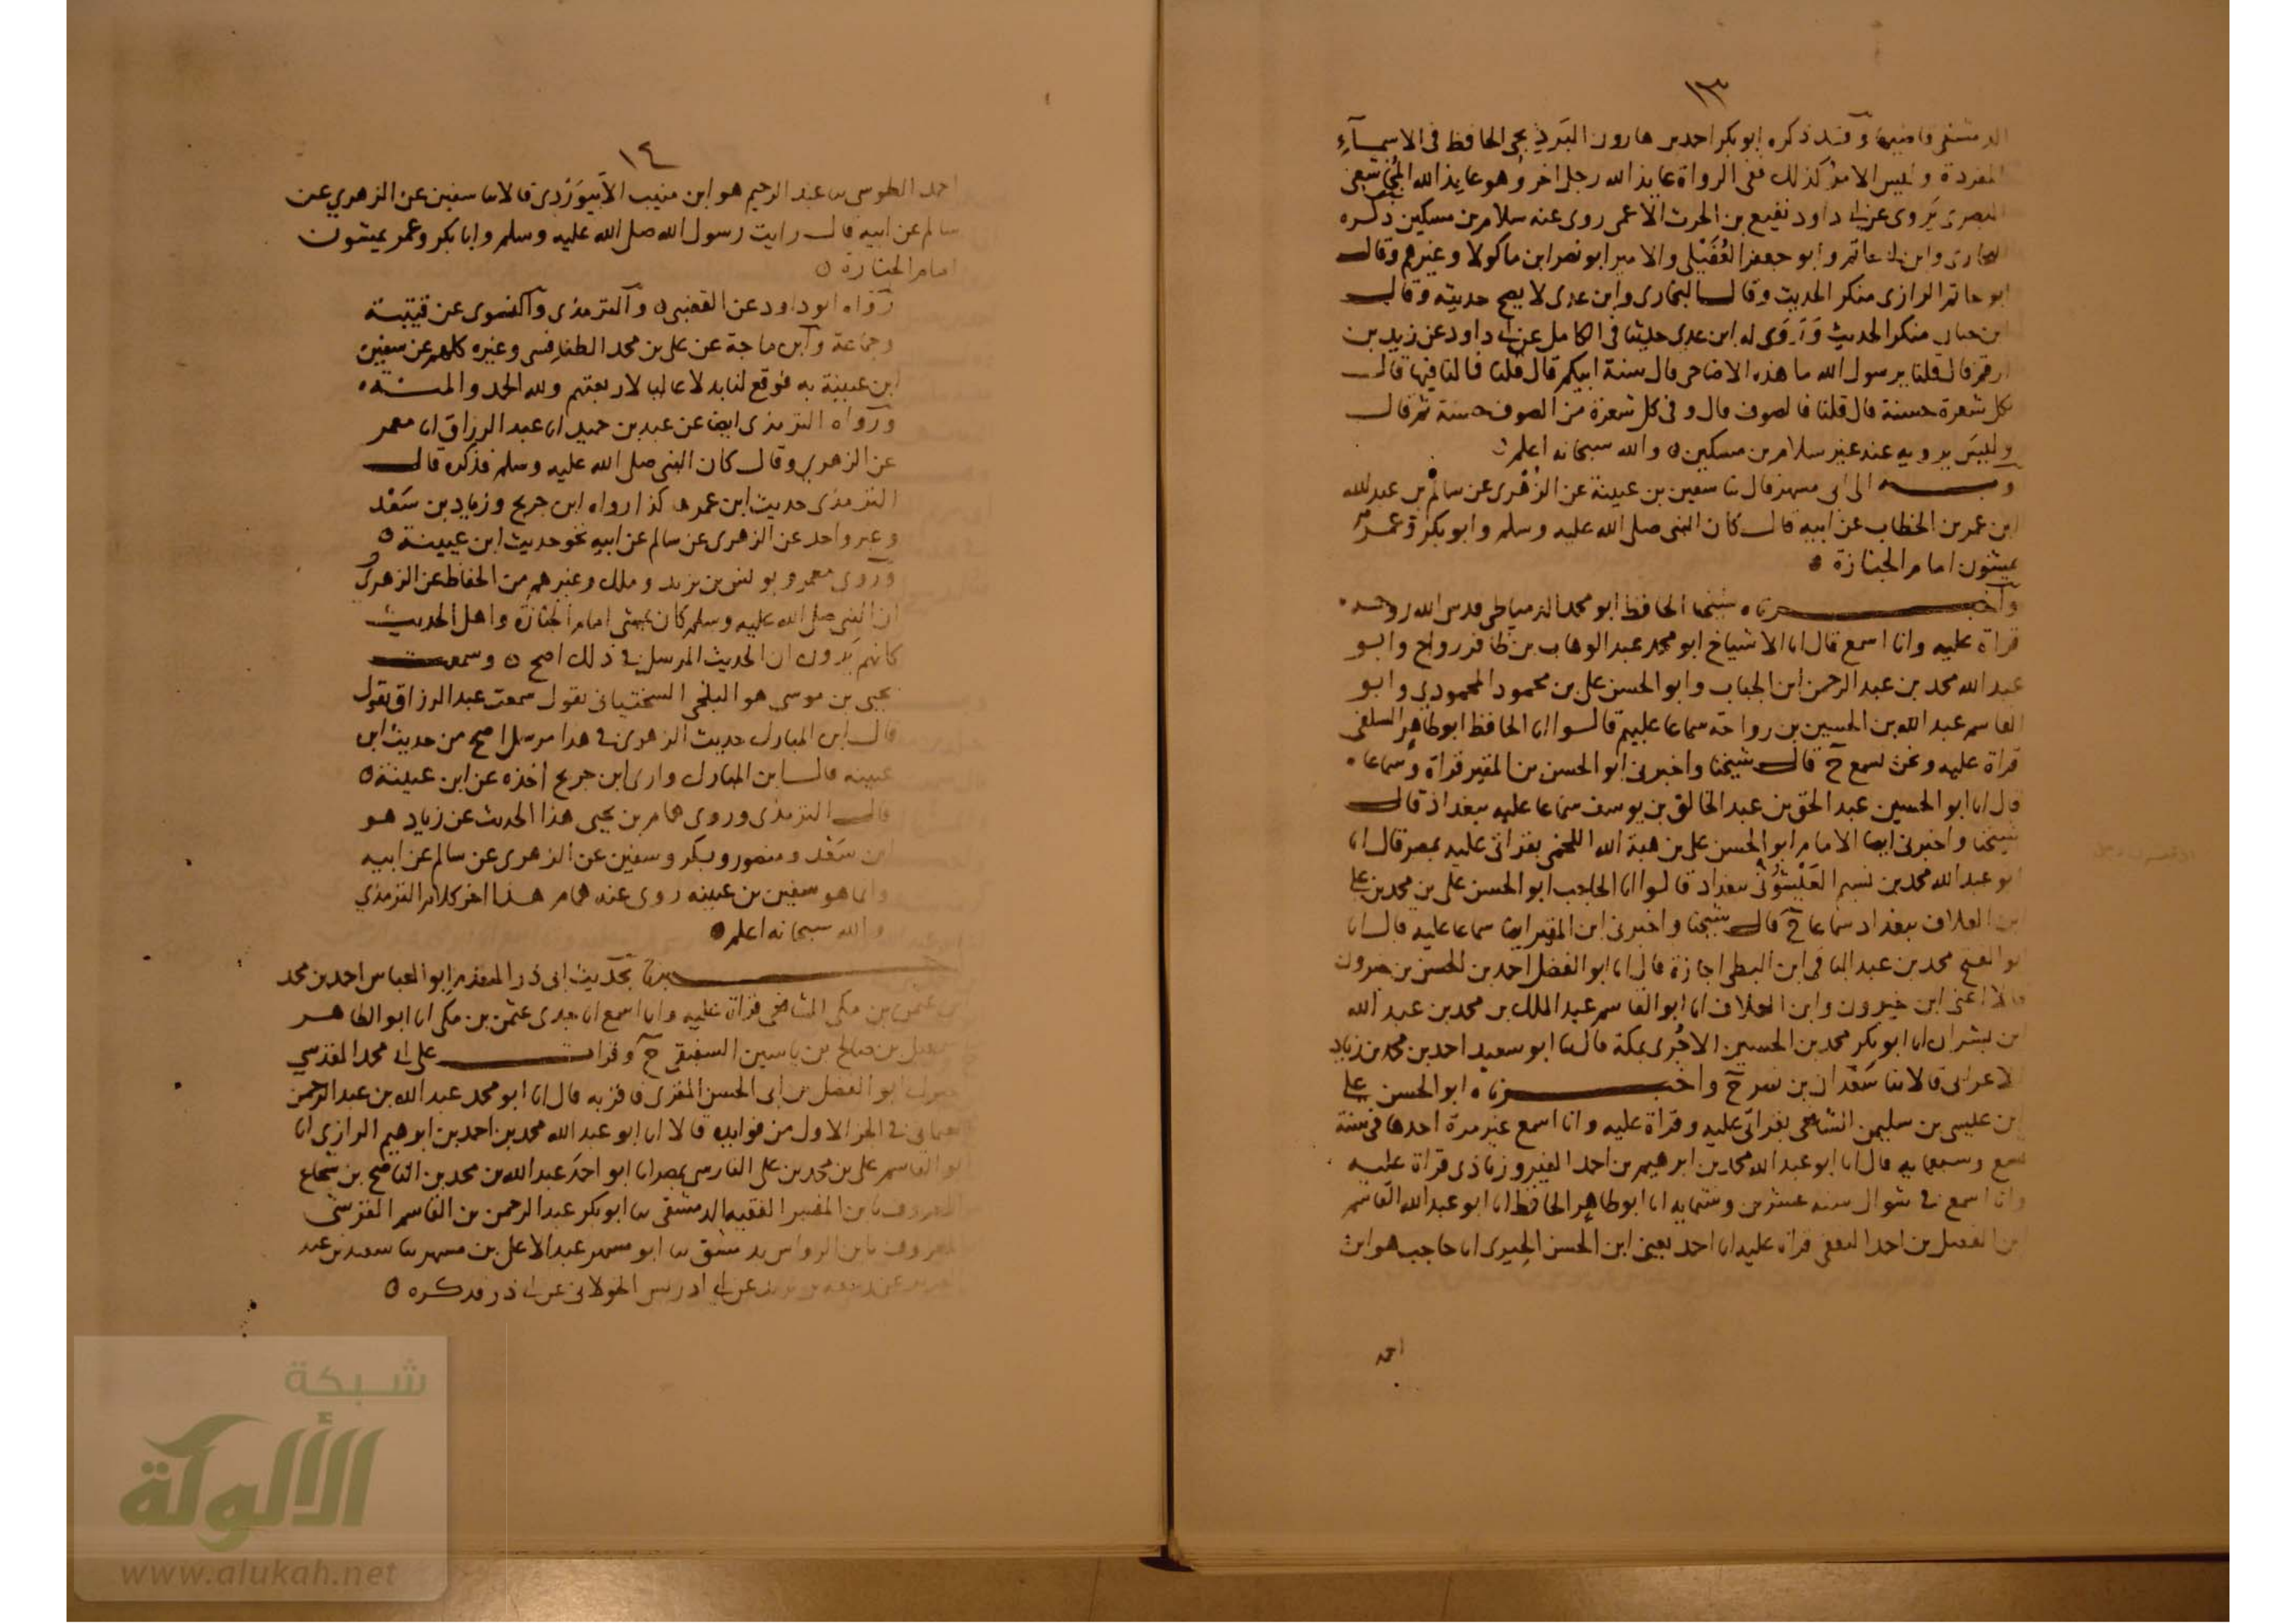 ١٣
الدمشقي وقد ذكره ابو بكر احمد بن هارون البرديجي الحافظ في الاسماء
المفردة وليس الامر كذلك ففي الرواة عايذ الله رجل اخر وهو عايذ الله المجاشعي
البصري يروي عن ابي داود نفيع بن الحرث الاعمى روى عنه سلام بن مسكين ذكره
البخاري وابن ابي حاتم وابو جعفر العقيلي والامير ابو نصر ابن ماكولا وغيرهم وقال
ابو حاتم الرازي منكر الحديث وقال البخاري وابن عدي لا يصح حديثه وقال
ابن حبان منكر الحديث وروى له ابن عدي حديثا في الكامل عن ابي داود عن زيد بن
ارقم قال قلنا يرسول الله ما هذه الاضاحي قال سنة ابيكم قال قلنا فما لنا فيها قال
بكل شعرة حسنة قال قلنا فالصوف قال وفي كل شعرة من الصوف حسنة ثم قال
وليس يرويه عنه غير سلام بن مسكين ه والله سبحانه اعلم
وبه الى ابي مسهر قال ثنا سفين بن عيينة عن الزهري عن سالم بن عبد الله
ابن عمر بن الخطاب عن ابيه قال كان النبي صلى الله عليه وسلم وابو بكر وعمر
يمشون امام الجنازة ه
واخبرناه شيخنا الحافظ ابو محمد الدمياطي قدس الله روحه
قراة عليه وانا اسمع قال انا الاشياخ ابو محمد عبد الوهاب بن ظافر رواج وابو
عبد الله محمد بن عبد الرحمن ابن الجباب وابو الحسن علي بن محمود المحمودي وابو
القاسم عبد الله بن الحسين بن رواحة سماعا عليهم قالوا انا الحافظ ابو طاهر السلفي
قراة عليه ونحن نسمع ح قال شيخنا واخبرني ابو الحسن بن المقير قراة وسماعا
قال انا ابو الحسين عبد الحق بن عبد الخالق بن يوسف سماعا عليه ببغداد قال
شيخنا واخبرني ايضا الامام ابو الحسن علي بن هبة الله اللخمي بقراتي عليه بمصر قال انا
ابو عبد الله محمد بن نسيم العيشوني ببغداد قالوا انا الحاجب ابو الحسن علي بن محمد بن علي
ابن العلاف ببغداد سماعا ح قال شيخنا واخبرني ابن المقير ايضا سماعا عليه قال انا
ابو الفتح محمد بن عبد الباقي ابن البطي اجازة قال انا ابو الفضل احمد بن الحسن بن خيرون
قالا اعني ابن خيرون وابن العلاف انا ابو القاسم عبد الملك بن محمد بن عبد الله
بن بشران انا ابو بكر محمد بن الحسين الاجري بمكة قال ثنا ابو سعيد احمد بن محمد بن زياد
الاعرابي قالا ثنا سعدان بن نصر ح واخبرناه ابو الحسن علي
ابن عيسى بن سليمن الشافعي بقراتي عليه وقراة عليه وانا اسمع غير مرة احدها في سنة
تسع وسبعمايه قال انا ابو عبد الله محمد بن ابرهيم بن احمد الفيروزباذي قراة عليه
وانا اسمع في شوال سنه عشرين وستمايه انا ابو طاهر الحافظ انا ابو عبد الله القاسم
بن الفضل بن احمد الثقفي قراة عليه انا احمد يعني ابن الحسن الحيري انا حاجب هو ابن
احمد
١٤
احمد الطوسي ثنا عبد الرحيم هو ابن منيب الابيوردي قالا ثنا سفين عن الزهري عن
سالم عن ابيه قال رايت رسول الله صلى الله عليه وسلم وابا بكر وعمر يمشون
امام الجنازة ه
رواه ابو داود عن القعنبي ه والترمذي والنسوي عن قتيبة
وجماعة وابن ماجة عن علي بن محمد الطنافسي وغيره كلهم عن سفين
ابن عيينة به فوقع لنا بدلا عاليا لاربعتهم ولله الحمد والمنة ه
ورواه الترمذي ايضا عن عبد بن حميد انا عبد الرزاق انا معمر
عن الزهري وقال كان النبي صلى الله عليه وسلم فذكره قال
الترمذي حديث ابن عمر هكذا رواه ابن جريج وزياد بن سعد
وغير واحد عن الزهري عن سالم عن ابيه نحو حديث ابن عيينة ه
وروى معمر ويونس بن يزيد وملك وغيرهم من الحفاظ عن الزهري
ان النبي صلى الله عليه وسلم كان يمشي امام الجنازة واهل الحديث
كانهم يرون ان الحديث المرسل في ذلك اصح ه وسمعت
يحيى بن موسى هو البلخي السختياني يقول سمعت عبد الرزاق يقول
قال ابن المبارك حديث الزهري في هذا مرسل اصح من حديث ابن
عيينه قال ابن المبارك وارى ابن جريج اخذه عن ابن عيينة ه
قال الترمذي وروى همام بن يحيى هذا الحديث عن زياد هو
ابن سعد ومنصور وبكر وسفين عن الزهري عن سالم عن ابيه
وانما هو سفين بن عيينه روى عنه همام هذا اخر كلام الترمذي
والله سبحانه اعلم ه
بحديث ابي ذر المتقدم ابو العباس احمد بن محمد
ابن عثمن بن مكي الشافعي قراة عليه وانا اسمع انا جدي عثمن بن مكي انا ابو الطاهر
اسمعيل بن صالح بن ياسين الشفيقي ح وقرات على ابي محمد المقدسي
ابو الفضل بن ابي الحسن المقري فاقر به قال انا ابو محمد عبد الله بن عبد الرحمن
العثماني في الجز الاول من فوايده قالا انا ابو عبد الله محمد بن احمد بن ابرهيم الرازي انا
ابو القاسم علي بن محمد بن علي الفارسي بمصر انا ابو احمد عبد الله بن محمد بن الناصح بن شجاع
المعروف بابن المفسر الفقيه الدمشقي ثنا ابو بكر عبد الرحمن بن القاسم القرشي
المعروف بابن الرواس بدمشق ثنا ابو مسهر عبد الاعلى بن مسهر ثنا سعيد بن عبد
العزيز عن ربيعه بن يزيد عن ابي ادريس الخولاني عن ابي ذر فذكره ه
شبكة
الألوكة
www.alukah.net